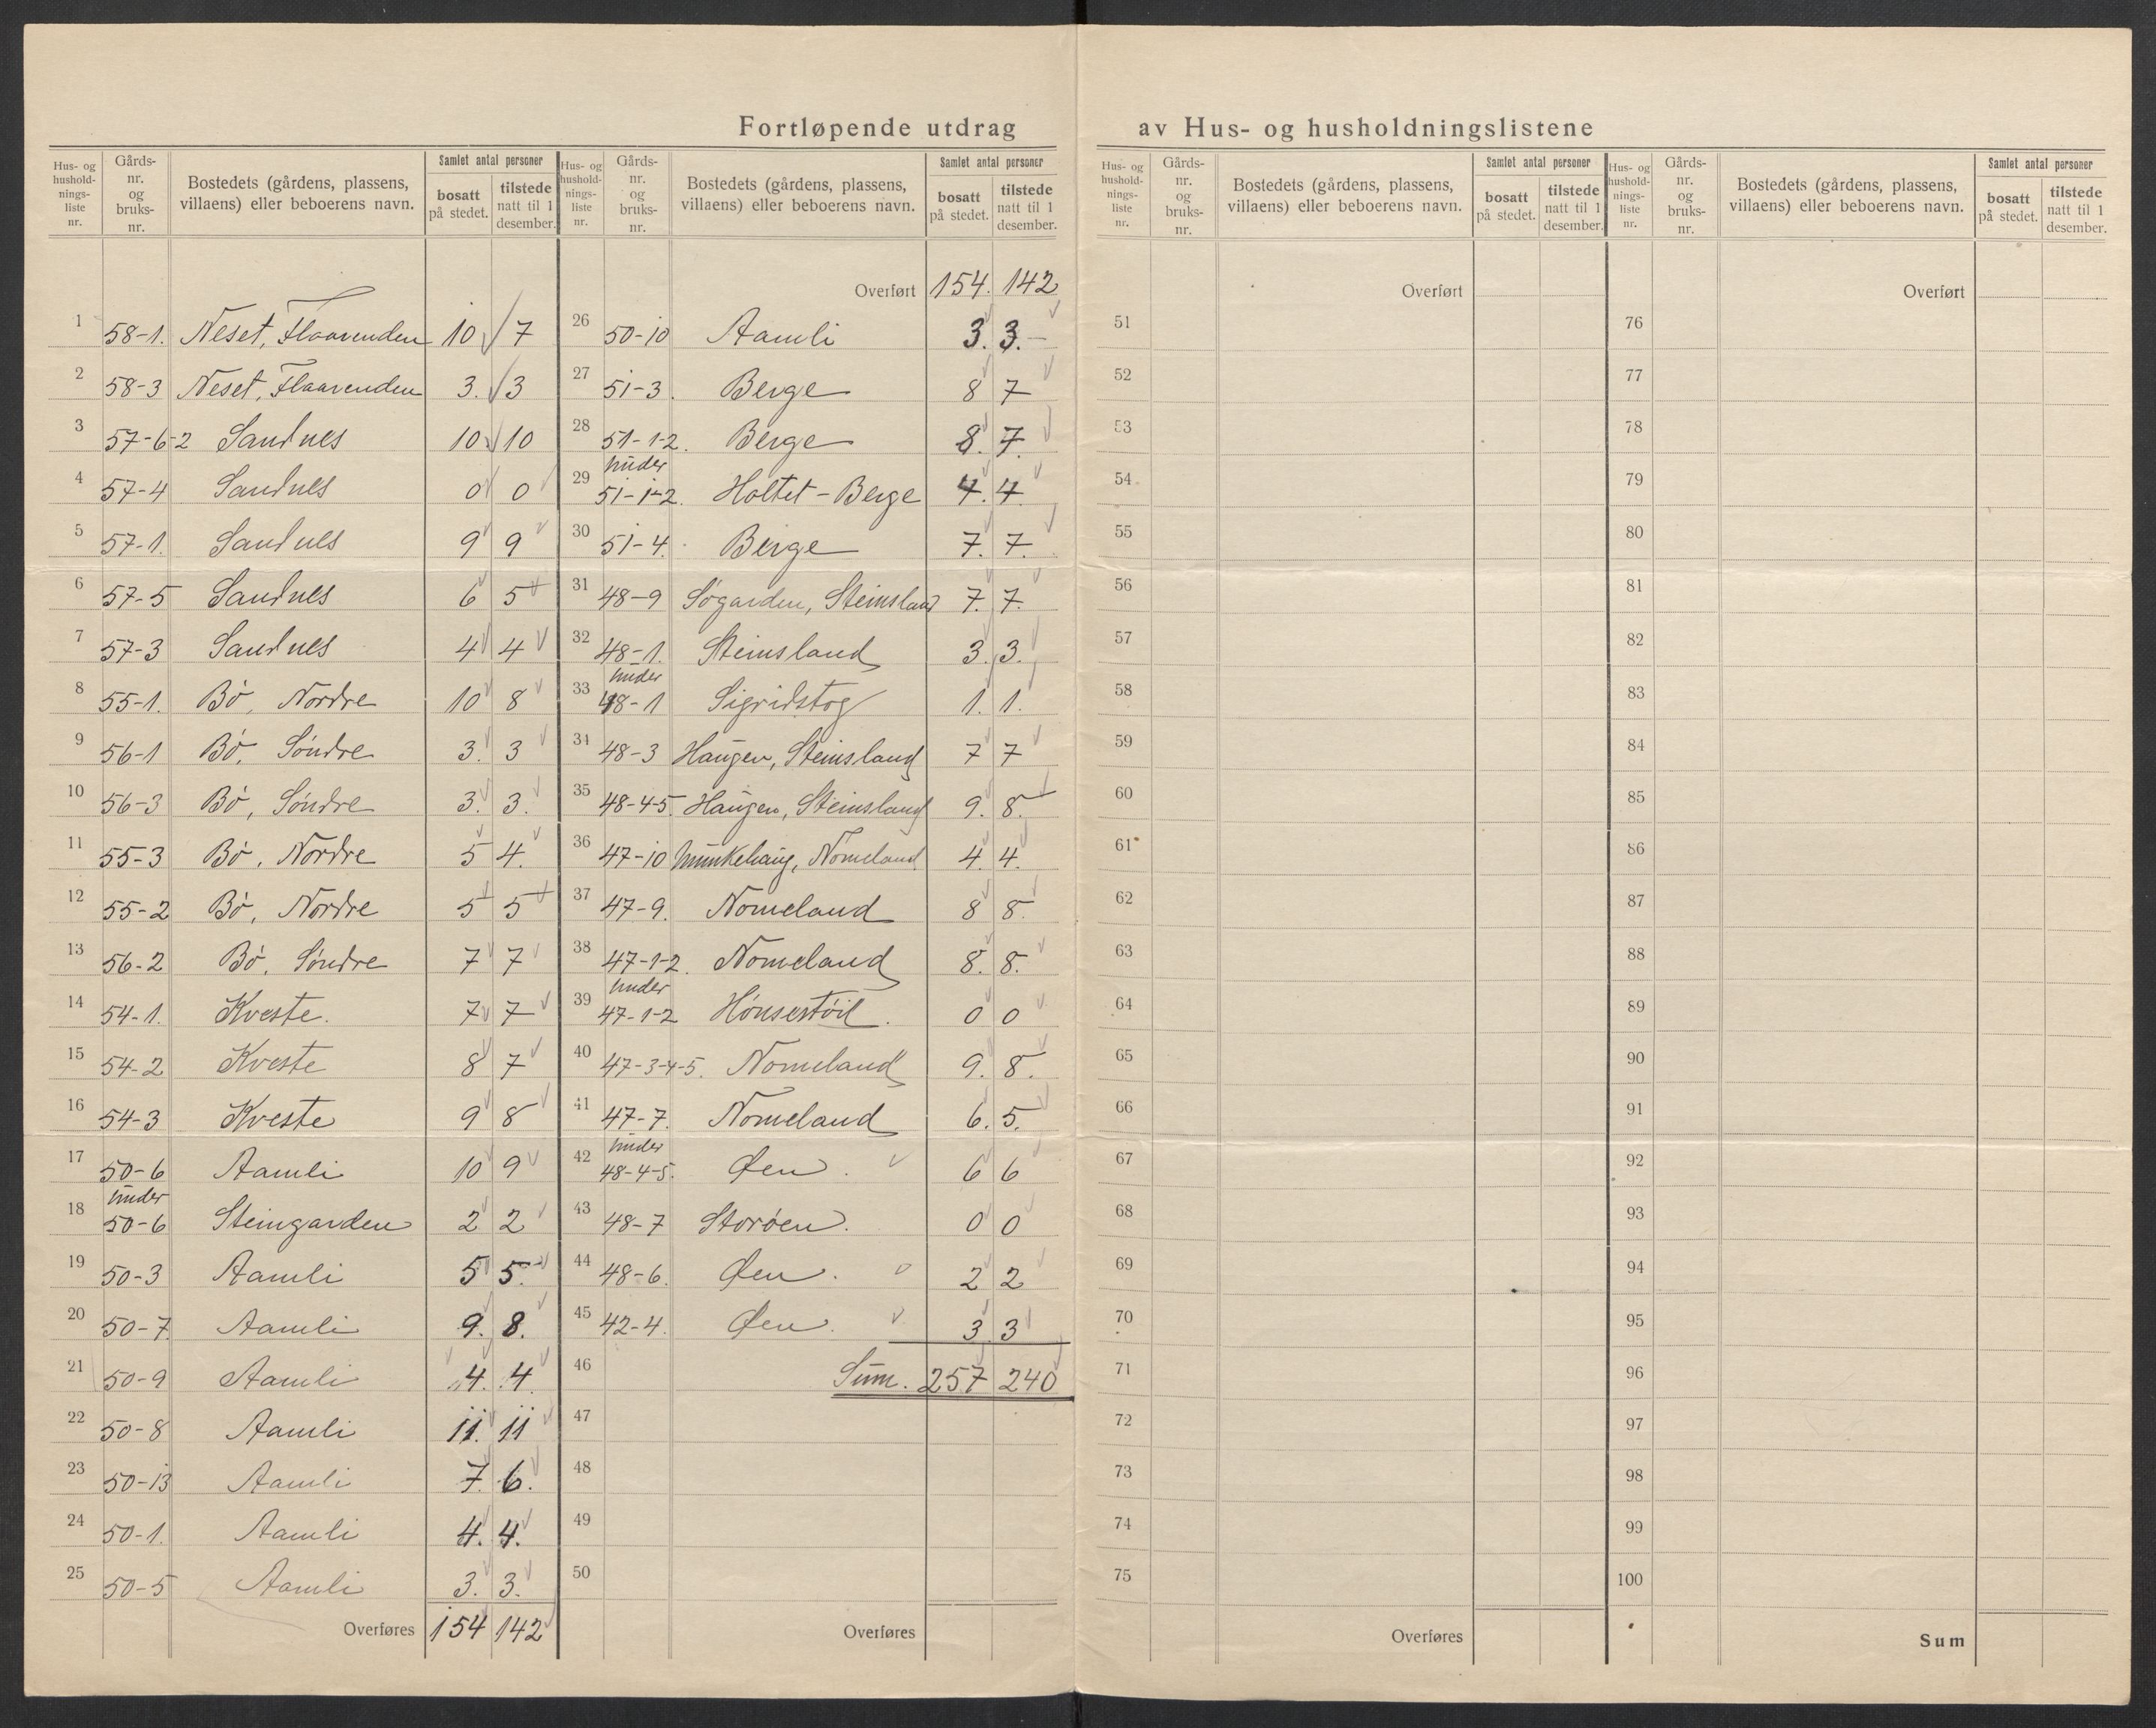 Fortløpende utdrag av Hus- og husholdningslistene
Hus- og husholdnings-liste nr. | Gårds-nr. og bruks-nr. | Bostedets (gårdens, plassens, villaens) eller beboerens navn. | Samlet antal personer bosatt på stedet. | tilstede natt til 1 desember.
1 58-1. Neset, Flaarenden 10 7
2 58-3 Neset, Flaarenden 3. 3
3 57-6-2 Sandnes 10 10
4 57-4 Sandnes 0 0
5 57-1. Sandnes 9 9
6 57-5 Sandnes 6 5
7 57-3 Sandnes 4 4
8 55-1. Bö, Nordre 10 8
9 56-1 Bö, Söndre 3. 3
10 56-3 Bö, Söndre 3. 3.
11 55-3 Bö, Nordre 5 4.
12 55-2 Bö, Nordre 5 5
13 56-2 Bö, Söndre 7 7
14 54-1. Kveste. 7 7
15 54-2 Kveste 8 7
16 54-3 Kveste 9 8
17 50-6 Aamli 10 9
18 under 50-6 Steingarden 2 2
19 50-3 Aamli 5 5.
20 50-7 Aamli 9. 8.
21 50-9 Aamli 4. 4.
22 50-8 Aamli 11. 11
23 50-13 Aamli 7. 6.
24 50-1. Aamli 4. 4.
25 50-5 Aamli 3. 3.
Overføres 154 142
Hus- og husholdnings-liste nr. | Gårds-nr. og bruks-nr. | Bostedets (gårdens, plassens, villaens) eller beboerens navn. | Samlet antal personer bosatt på stedet. | tilstede natt til 1 desember.
Overført 154. 142
26 50-10 Aamli 3. 3.-
27 51-3. Berge 8 7
28 51-1-2. Berge 8. 7.
29 under 51-1-2. Holtet-Berge 4. 4.
30 51-4. Berge 7. 7.
31 48-9 Søgarden, Steinsland 7. 7.
32 48-1. Steinsland 3. 3.
33 under 48-1 Sigridstog 1. 1.
34 48-3 Haugen, Steinsland 7 7
35 48-4-5. Haugen, Steinsland 9. 8.
36 47-10 Munkehaug, Nomeland 4. 4.
37 47-9. Nomeland 8 8.
38 47-1-2. Nomeland 8. 8.
39 under 47-1-2 Hönsestöil. 0 0
40 47-3-4-5. Nomeland 9. 8.
41 47-7. Nomeland 6. 5.
42 under 48-4-5. Øen. 6 6
43 48-7 Storöen. 0 0
44 48-6. Øen. 2 2
45 42-4. Øen. 3 3
46 Sum. 257 240
47
48
49
50
Overføres
Hus- og husholdnings-liste nr. | Gårds-nr. og bruks-nr. | Bostedets (gårdens, plassens, villaens) eller beboerens navn. | Samlet antal personer bosatt på stedet. | tilstede natt til 1 desember.
Overført
51
52
53
54
55
56
57
58
59
60
61
62
63
64
65
66
67
68
69
70
71
72
73
74
75
Overføres
Hus- og husholdnings-liste nr. | Gårds-nr. og bruks-nr. | Bostedets (gårdens, plassens, villaens) eller beboerens navn. | Samlet antal personer bosatt på stedet. | tilstede natt til 1 desember.
Overført
76
77
78
79
80
81
82
83
84
85
86
87
88
89
90
91
92
93
94
95
96
97
98
99
100
Sum